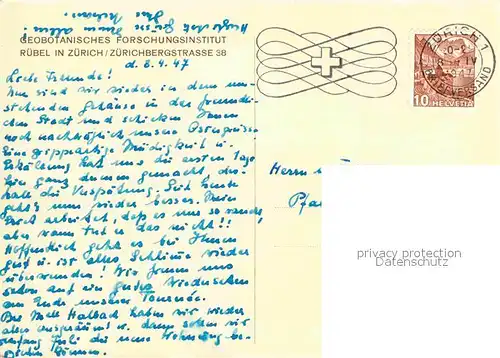 GEOBOTANISCHES FORSCHUNGSINSTITUT
RÜBEL IN ZÜRICH / ZÜRICHBERGSTRASSE 38
d. 8.4.47
Liebe Freunde!
Nun sind wir wieder in dem
stehenden Gehäuse in der freundlichen
Stadt und schicken Ihnen
noch nachträglich unsere Ostergrüsse
Eine grippeartige Müdigkeit u.
Erkältung hat uns die ersten Tage
hier ganz gemacht, des-
halb die Verspätung. Seit heute
geht's uns wieder besser. Mein
arbeitet, dass es nur so
aber tut er das nicht!!
Hoffentlich geht es bei Ihnen
gut u. ist alles Schlimme wieder
überwunden! Wir freuen uns
schon auf ein gutes Wiedersehen
am Ende unserer Tournée.
Bei haben wir wieder
alles u. dann sollen wir
anfang Juli die neue Wohnung be-
ziehen können.
ZÜRICH 1
BRIEFVERSAND
10 HELVETIA
Herrn u. F
Pfa
privacy protection
Datenschutz